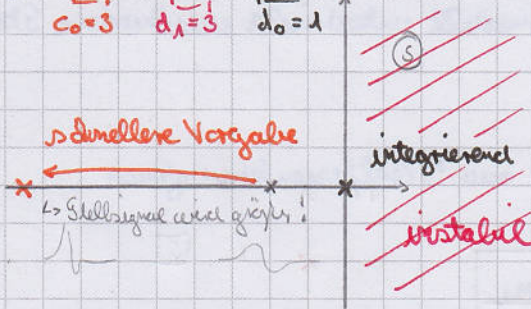 c₀=3 d₁=3 d₀=1
S
schnellere Vorgabe
integrierend
↳ Stellsignal wird größer!
instabil